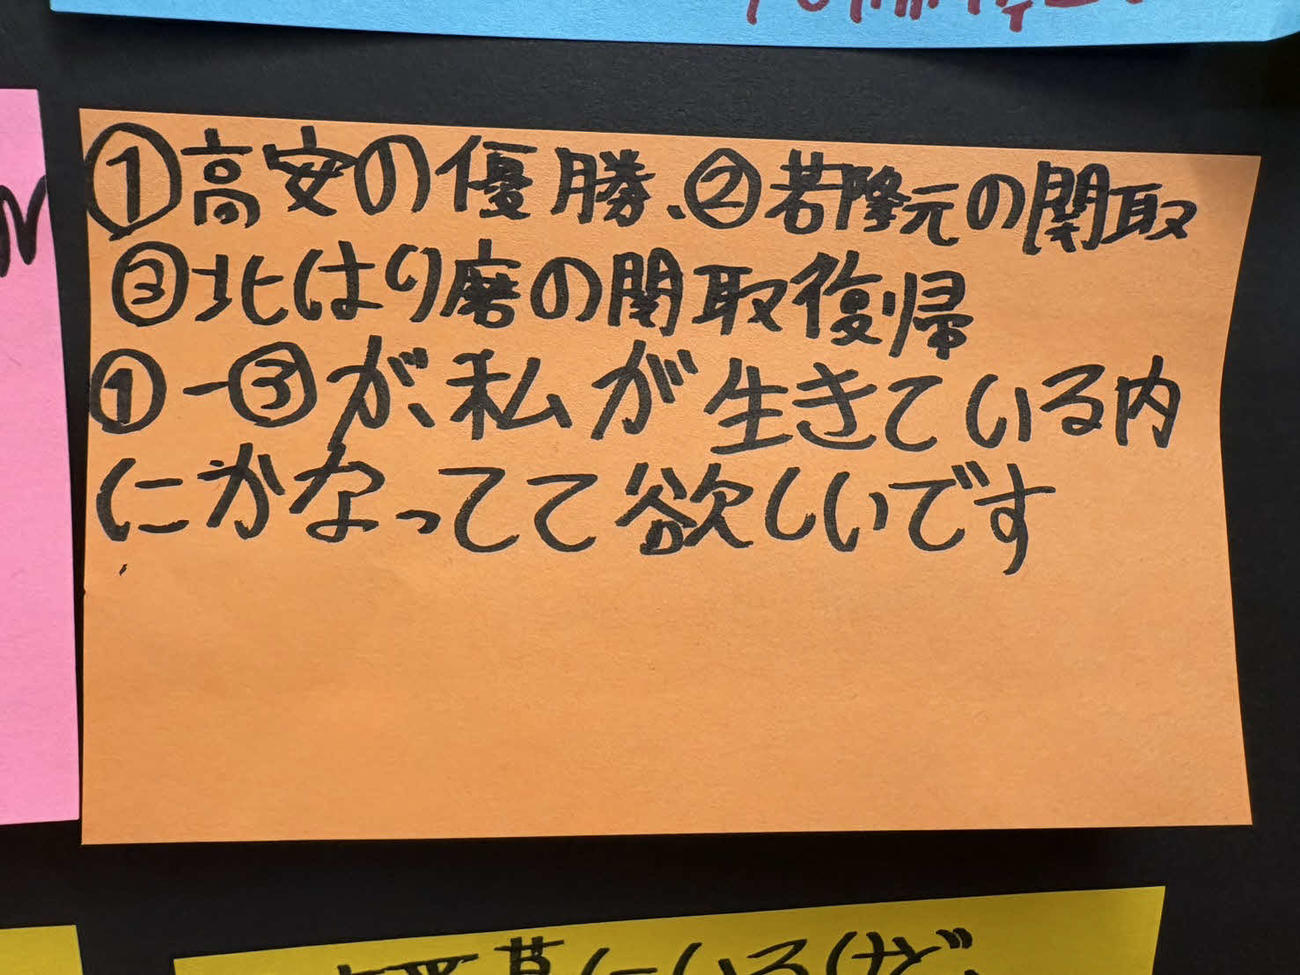 ①高安の優勝、②若隆元の関取
③北はり磨の関取復帰
①-③が、私が生きている内
にかなってて欲しいです
にいるけど、